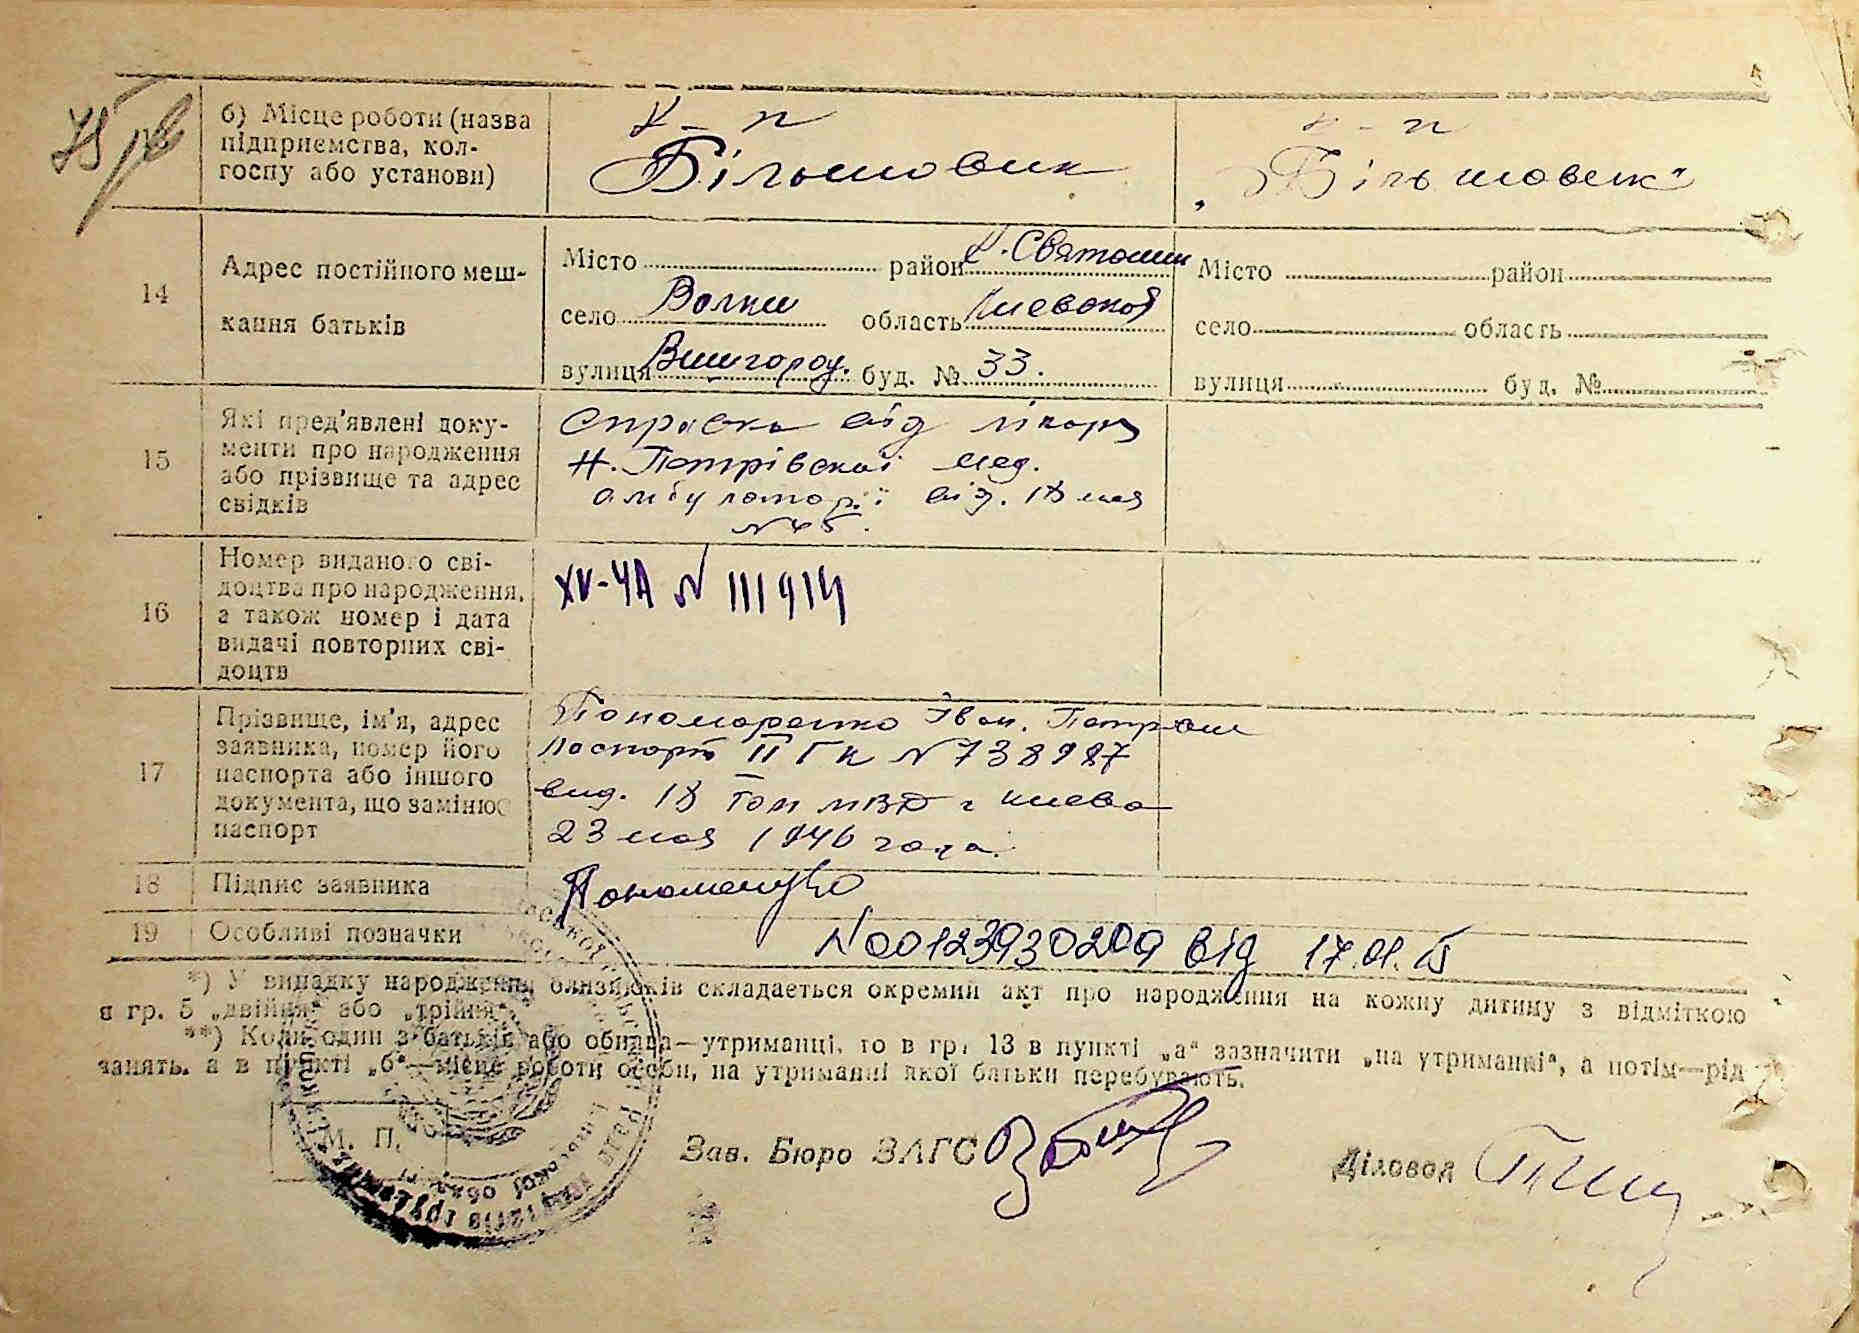 б) Місце роботи (назва
підприємства, кол-
госпу або установи)
к-п
Більшовик
к-п
„Більшовик"
14
Адрес постійного меш-
кання батьків
Місто район К. Святошин
село Волки область Киевской
вулиця Вишгород. буд. № 33.
Місто район
село область
вулиця буд. №
15
Які пред'явлені доку-
менти про народження
або прізвище та адрес
свідків
Справка від лікаря
Н. Петрівської мед.
амбулаторії від. 18 мая
N 45.
16
Номер виданого сві-
доцтва про народження,
а також номер і дата
видачі повторних сві-
доцтв
XV-ЧА N 111914
17
Прізвище, ім'я, адрес
заявника, номер його
паспорта або іншого
документа, що замінює
паспорт
Пономаренко Іван. Петрович
Паспорт II ГК N 738987
вид. 18 Гом МВД г Киева
23 мая 1946 года.
18
Підпис заявника
19
Особливі позначки
N00123930209 від 17.01.15
*) У випадку народження близнюків складається окремий акт про народження на кожну дитину з відміткою
в гр. 5 „двійня" або „трійня".
**) Коли один з батьків або обидва—утриманці, то в гр. 13 в пункті „а" зазначити „на утриманні", а потім—рід
занять, а в пункті „б"—місце роботи особи, на утриманні якої батьки перебувають.
М. П.
Зав. Бюро ЗАГС
Діловод